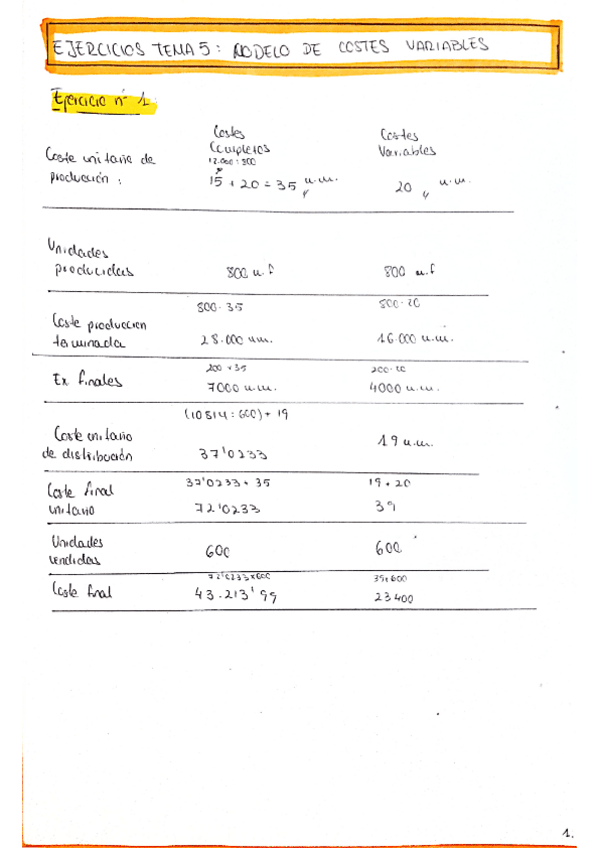 EJERCICIOS TEMA 5: MODELO DE COSTES VARIABLES
Ejercicio nº 1.
Costes Completos
Costes Variables
12.000:800
Coste unitario de producción:
15 + 20 = 35 u.m.
20 u.m.
Unidades producidas
800 u.f
800 u.f
800·35
800·20
Coste produccion terminada
28.000 u.m.
16.000 u.m.
200 x 35
200·20
Ex finales
7000 u.m.
4000 u.m.
(10814:600) + 19
Coste unitario de distribución
37'0233
19 u.m.
37'0233 + 35
19 + 20
Coste final unitario
72'0233
39
Unidades vendidas
600
600
72'0233x600
39x600
Coste final
43.213'99
23400
1.